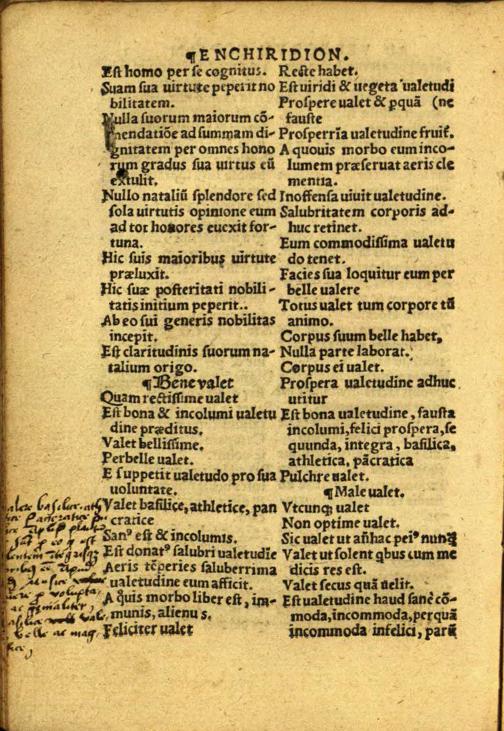 ¶ENCHIRIDION.
Est homo per se cognitus.
Suam sua uirtute peperit no
bilitatem.
Nulla suorum maiorum cō-
mendatiōe ad summam di-
gnitatem per omnes hono
rum gradus sua uirtus eū
extulit.
Nullo nataliū splendore sed
sola uirtutis opinione eum
ad tot honores euexit for-
tuna.
Hic suis maioribus uirtute
præluxit.
Hic suæ posteritati nobili-
tatis initium peperit..
Ab eo sui generis nobilitas
incepit.
Est claritudinis suorum na-
talium origo.
¶Bene valet
Quam rectissime ualet
Est bona & incolumi ualetu
dine præditus.
Valet bellissime.
Perbelle ualet.
E suppetit ualetudo pro sua
uoluntate.
Valet basilice, athletice, pan
cratice
Sanꝰ est & incolumis.
Est donatꝰ salubri ualetudīe
Aeris tēperies saluberrima
ualetudine eum afficit.
A quis morbo liber est, im-
munis, alienus.
Feliciter ualet
Recte habet.
Est uiridi & uegeta ualetudi
Prospere ualet & ꝑquā (ne
fauste
Prosperria ualetudine fruit̃.
A quouis morbo eum inco-
lumem præseruat aeris cle
mentia.
Inoffensa uiuit ualetudine.
Salubritatem corporis ad-
huc retinet.
Eum commodissima ualetu
do tenet.
Facies sua loquitur eum per
belle ualere
Totus ualet tum corpore tū
animo.
Corpus suum belle habet,
Nulla parte laborat.
Corpus ei ualet.
Prospera ualetudine adhuc
utitur
Est bona ualetudine, fausta
incolumi, felici prospera, se
quunda, integra, basilica,
athletica, pācratica
Pulchre ualet.
¶Male valet.
Vtcunqꝫ ualet
Non optime ualet.
Sic ualet ut añhac peiꝰ nunqꝫ
Valet ut solent qbus cum me
dicis res est.
Valet secus quā uelit.
Est ualetudine haud sanè cō-
moda, incommoda, perquā
incommoda infelici, parū